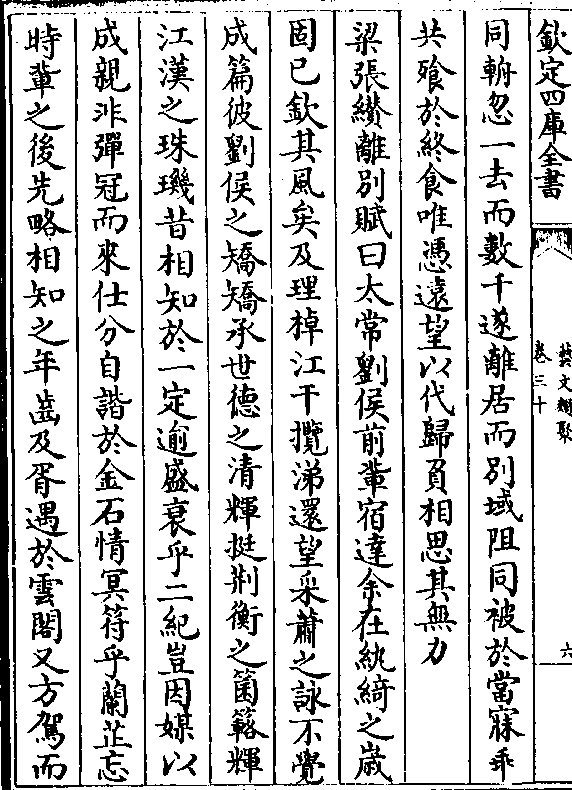 欽定四庫全書
藝文類聚
卷三十
六
同輈忽一去而數千遂離居而别域阻同被於當寐乖
共飱於終食唯憑遠望以代歸負相思其無力
梁張纉離别賦曰太常劉侯前輩宿達余在紈綺之歲
固已欽其風矣及理棹江干攬涕還望采蕭之詠不覺
成篇彼劉侯之矯矯承世德之清輝挺荆衡之箘簵輝
江漢之珠璣昔相知於一定逾盛衰乎二紀豈因媒以
成親非彈冠而來仕分自諧於金石情冥符乎蘭芷忘
時輩之後先略相知之年齒及胥遇於雲閣又方駕而